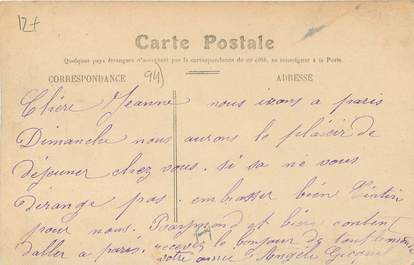 12f
Carte Postale
Quelques pays étrangers n'acceptent pas la correspondance de ce côté, se renseigner à la Poste.
CORRESPONDANCE
94)
ADRESSE
Chère Jeanne nous irons a paris
Dimanche nous aurons le plaisir de
déjeuner chez vous. si sa ne vous
dérange pas. embrasser bien Tintin
pour nous. Raymond est bien content
daller a paris. recevez le bonjour de tout
votre amie Angèle